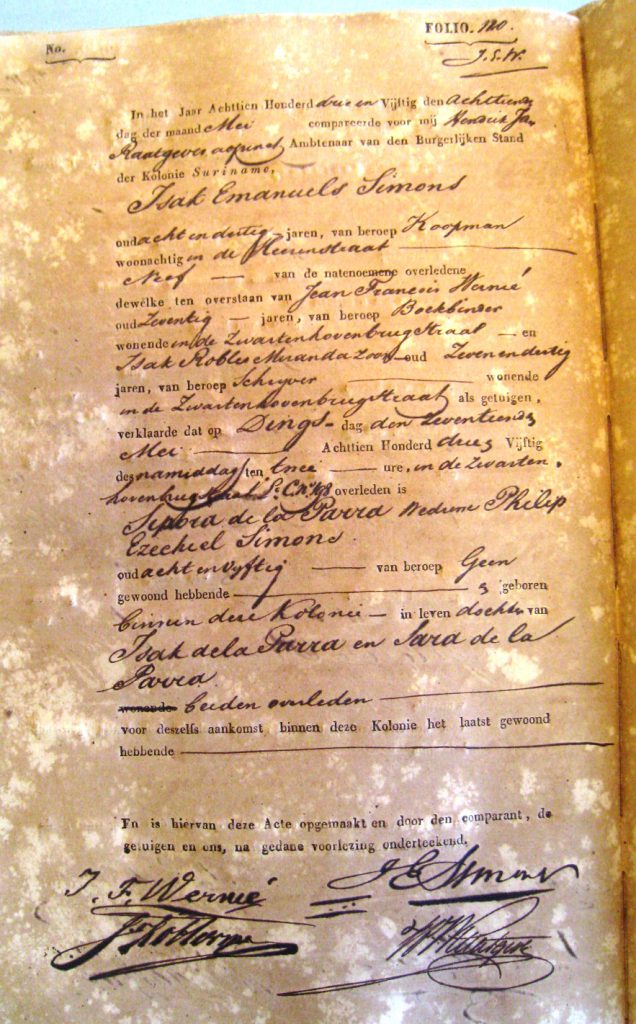 No.
FOLIO. 120.
J.S.W.
In het Jaar Achttien Honderd drie en Vijftig den Achttiende
dag der maand Mei compareerde voor mij Hendrik Jan
Raatgever adjunct Ambtenaar van den Burgerlijken Stand
der Kolonie Suriname,
Isak Emanuels Simons
oud acht en dertig jaren, van beroep Koopman
woonachtig in de Heerenstraat
Neef van de natenoemene overledene
dewelke ten overstaan van Jean François Wernié
oud Zeventig jaren, van beroep Boekbinder
wonende in de Zwartenhovenbrugstraat en
Isak Robles Miranda Zoon oud Zeven en dertig
jaren, van beroep Schryver wonende
in de Zwartenhovenbrugstraat als getuigen,
verklaarde dat op Dings-dag den Zeventiende
Mei Achttien Honderd drie Vijftig
des namiddag ten twee ure, in de Zwarten,
hovenbrugstraat overleden is
Sipora de la Parra Weduwe Philip
Ezechiel Simons.
oud acht en vyftig van beroep Geen
gewoond hebbende geboren
binnen deze Kolonie in leven dochter van
Isak de la Parra en Sara de la
Parra.
wonende beiden overleden
voor deszelfs aankomst binnen deze Kolonie het laatst gewoond
hebbende
En is hiervan deze Acte opgemaakt en door den comparant, de
getuigen en ons, na gedane voorlezing onderteekend.
J. F. Wernié
J E Simons